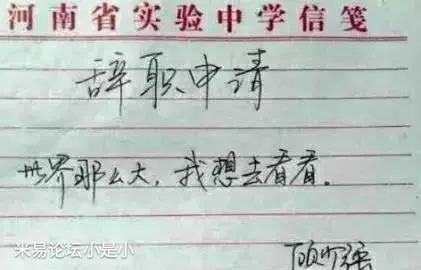 河南省实验中学信笺
辞职申请
世界那么大，我想去看看。
顾少强
米易论坛小是小